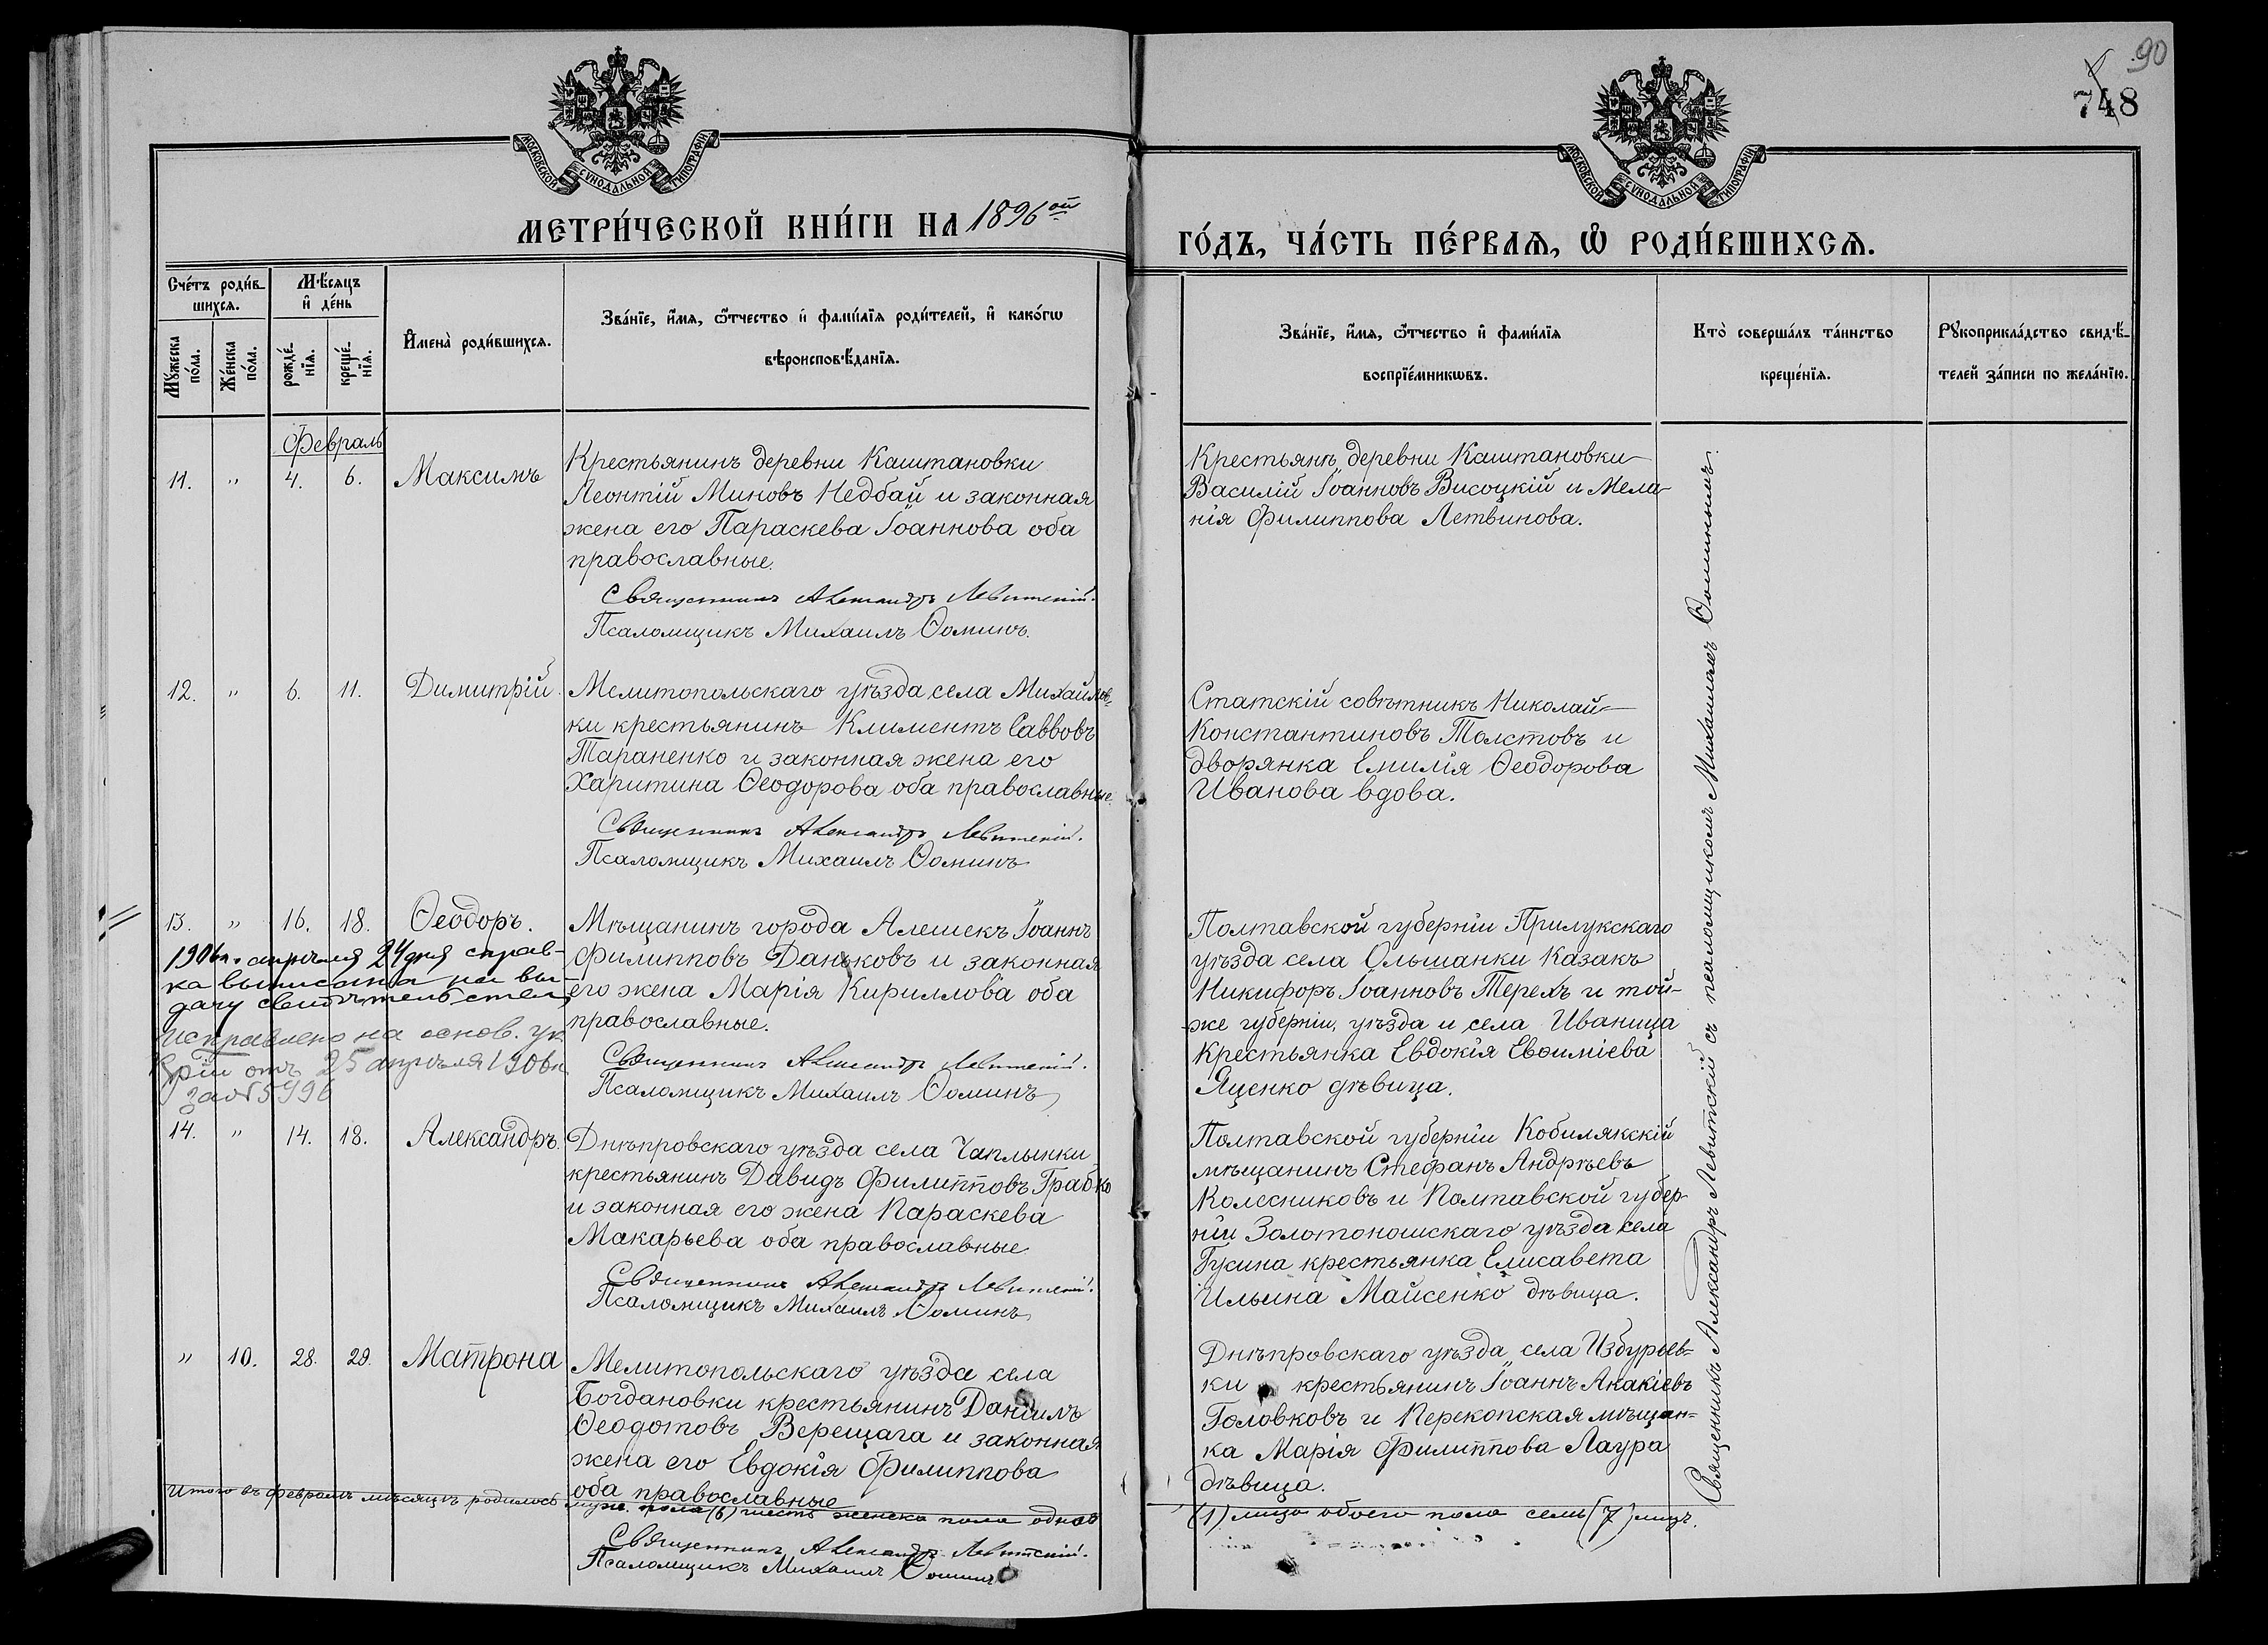 90
748
МОСКОВСКОЙ СѴНОДАЛЬНОЙ ТИПОГРАФІИ
МОСКОВСКОЙ СѴНОДАЛЬНОЙ ТИПОГРАФІИ
МЕТРИ́ЧЕСКОЙ КНИ́ГИ НА 1896ой
ГО́ДЪ, ЧА́СТЬ ПЕ́РВАѦ, Ѽ РОДИ́ВШИХСѦ.
Сче́тъ роди́в-
шихсѧ.
Мꙋ́жеска по́ла.
Же́нска по́ла.
Мѣ́сѧцъ
и҆ де́нь
рожде́-
нїѧ.
креще́-
нїѧ.
И҆мена̀ роди́вшихсѧ.
Зва́нїе, и҆́мѧ, ѻ҆́тчество и҆ фами́лїѧ роди́телей, и҆ како́гѡ
вѣроисповѣ́данїѧ.
Зва́нїе, и҆́мѧ, ѻ҆́тчество и҆ фами́лїѧ
воспрїе́мникѡвъ.
Кто̀ соверша́лъ та́инство
креще́нїѧ.
Рꙋкоприкла́дство свидѣ́-
телей за́писи по жела́нїю.
Февраль
11. " 4. 6. Максимъ
Крестьянинъ деревни Каштановки
Леонтій Миновъ Недбай и законная
жена его Параскева Іоаннова оба
православные.
Священникъ Александръ Левитскій.
Псаломщикъ Михаилъ Ѳоминъ.
Крестьянѣ деревни Каштановки
Василій Іоанновъ Висоцкій и Мела-
нія Филиппова Летвинова.
12. " 6. 11. Димитрій.
Мелитопольскаго уѣзда села Михайлов-
ки крестьянинъ Климентъ Савовъ
Тараненко и законная жена его
Харитина Ѳеодорова оба православные.
Священникъ Александръ Левитскій.
Псаломщикъ Михаилъ Ѳоминъ
Статскій совѣтникъ Николай
Константиновъ Толстовъ и
дворянка Емилія Ѳеодорова
Иванова вдова.
13. " 16. 18. Ѳеодоръ.
Мѣщанинъ города Алешекъ Іоаннъ
Филипповъ Даньковъ и законная
его жена Марія Кириллова оба
православные.
Священникъ Александръ Левитскій.
Псаломщикъ Михаилъ Ѳоминъ
1906 г. апрѣля 24 дня справ-
ка выписана на вы-
дачу свидѣтельства
исправлено на основ. ук.
отъ 25 апрѣля 1906 г.
за № 5996
Полтавской губерніи Прилукскаго
уѣзда села Ольшанки Казакъ
Никифоръ Іоанновъ Терехъ и той-
же губерніи, уѣзда и села Иваница
Крестьянка Евдокія Евѳиміева
Яценко дѣвица.
14. " 14. 18. Александръ.
Днѣпровскаго уѣзда села Чаплынки
крестьянинъ Давидъ Филипповъ Грабко
и законная его жена Параскева
Макарьева оба православные
Священникъ Александръ Левитскій.
Псаломщикъ Михаилъ Ѳоминъ
Полтавской губерніи Кобилякскій
мѣщанинъ Стефанъ Андрѣевъ
Колесниковъ и Полтавской губер-
ніи Золотоношскаго уѣзда села
Гусина крестьянка Елисавета
Ильина Майсенко дѣвица.
" 10. 28. 29. Матрона
Мелитопольскаго уѣзда села
Богдановки крестьянинъ Даніилъ
Ѳеодотовъ Верещага и законная
жена его Евдокія Филиппова
оба православные
Днѣпровскаго уѣзда села Избурьев-
ки крестьянинъ Іоаннъ Акакіевъ
Головковъ и Перекопская мѣщан-
ка Марія Филиппова Лаура
дѣвица.
Итого въ февралѣ мѣсяцѣ родилось муже. пола (6) шесть женска пола одно
(1) лицо обоего пола семь (7) лицъ.
Священникъ Александръ Левитскій.
Псаломщикъ Михаилъ Ѳоминъ
Священникъ Александръ Левитскій съ псаломщикомъ Михаиломъ Ѳоминымъ.